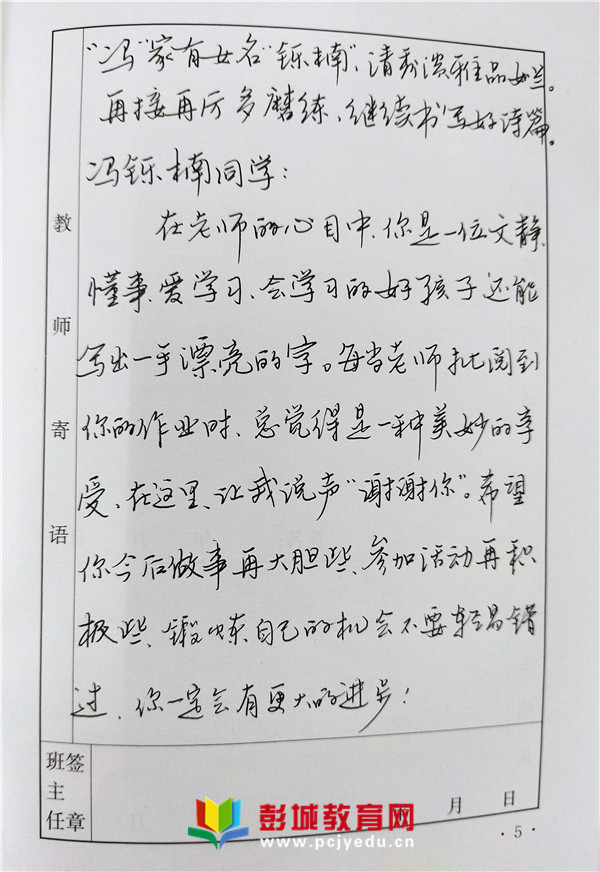 “冯”家有女名“铄楠”，清秀淡雅品如兰。
再接再厉多磨练、继续书写好诗篇。
冯铄楠同学：
在老师的心目中、你是一位文静、
懂事、爱学习、会学习的好孩子还能
写出一手漂亮的字。每当老师批阅到
你的作业时、总觉得是一种美妙的享
受、在这里、让我说声“谢谢你”。希望
你今后做事再大胆些、参加活动再积
极些、锻炼自己的机会不要轻易错
过、你一定会有更大的进步！
教师寄语
班主任签章
月 日
彭城教育网
www.pcjyedu.cn
·5·